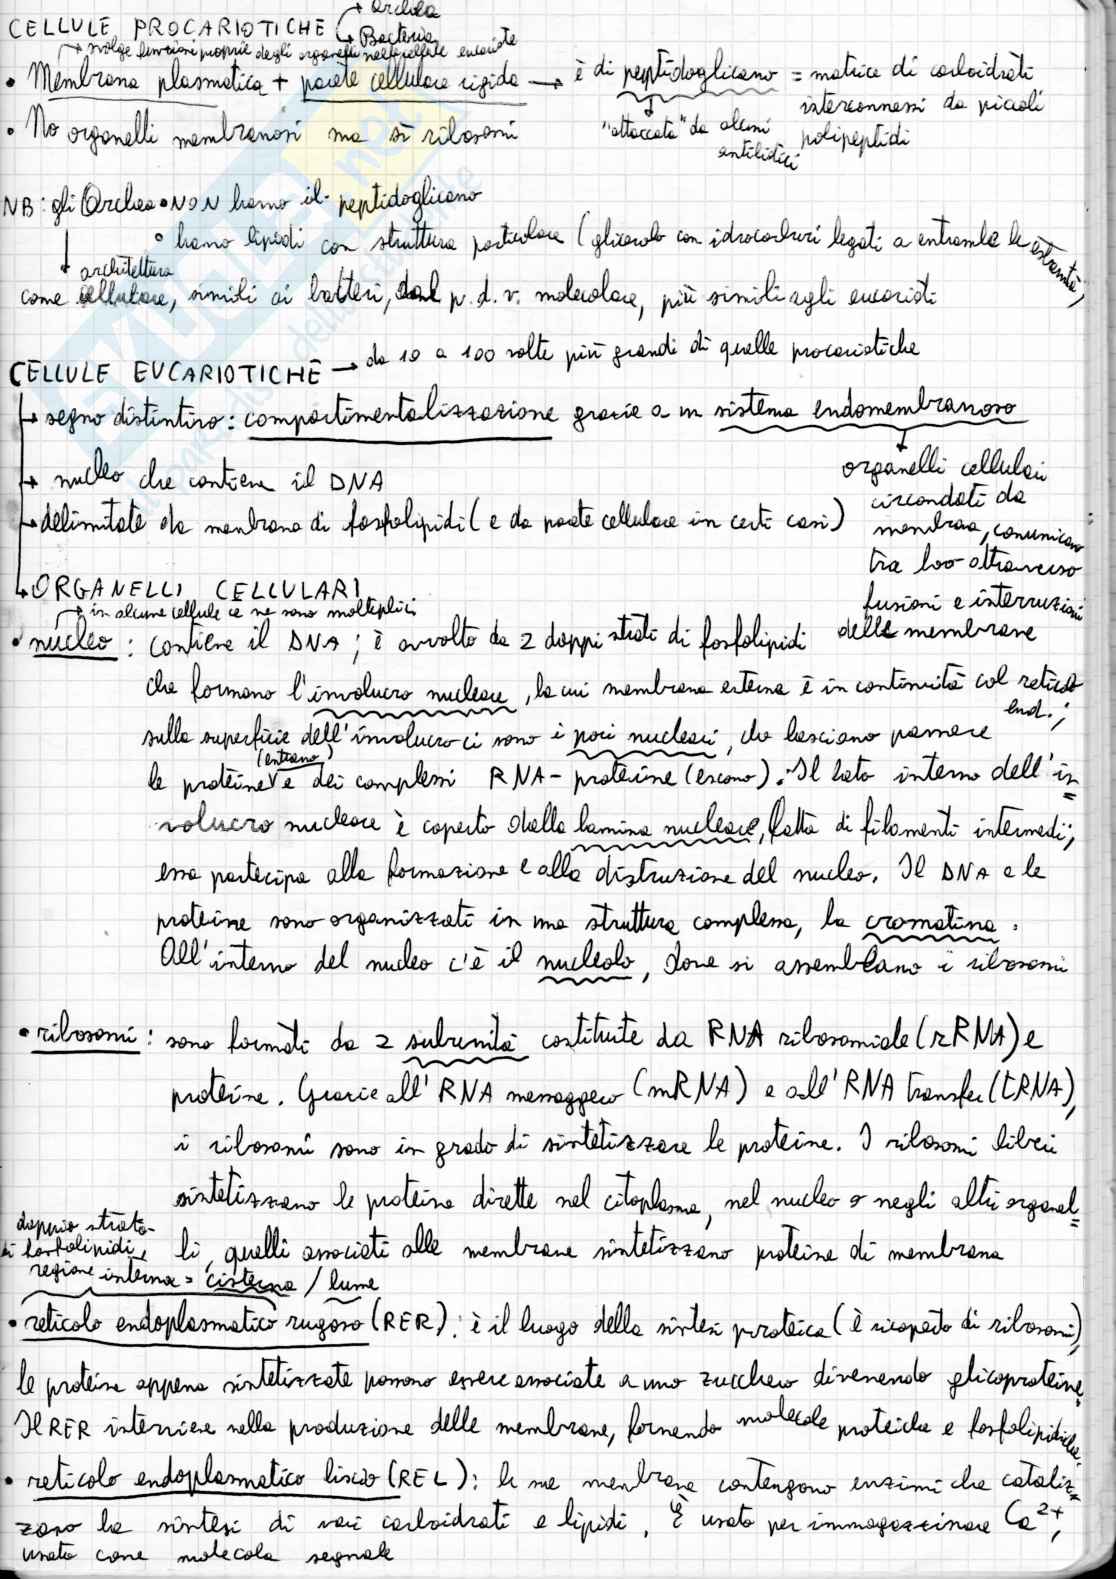 CELLULE PROCARIOTICHE → Archea
→ Bacteria
→ svolge funzioni proprie degli organelli nelle cellule eucariote
• Membrana plasmatica + parete cellulare rigida → è di peptidoglicano = matrice di carboidrati
interconnessi da piccoli
polipeptidi
"attaccato" da alcuni
antibiotici
• No organelli membranosi ma sì ribosomi
NB: gli Archea • NON hanno il peptidoglicano
• hanno lipidi con struttura particolare (glicerolo con idrocarburi legati a entrambe le estremità)
architettura
come cellulare, simili ai batteri, dal p.d.v. molecolare, più simili agli eucarioti
CELLULE EUCARIOTICHE → da 10 a 100 volte più grandi di quelle procariotiche
→ segno distintivo: compartimentalizzazione grazie a un sistema endomembranoso
→ nucleo che contiene il DNA
→ delimitate da membrana di fosfolipidi (e da parete cellulare in certi casi)
organelli cellulari
circondati da
membrana, comunicano
tra loro attraverso
fusioni e interruzioni
delle membrane
→ ORGANELLI CELLULARI
→ in alcune cellule ce ne sono molteplici
• nucleo: contiene il DNA; è avvolto da 2 doppi strati di fosfolipidi
che formano l'involucro nucleare, la cui membrana esterna è in continuità col reticolo
end.;
sulla superficie dell'involucro ci sono i pori nucleari, che lasciano passare
le proteine (entrano) e dei complessi RNA-proteine (escono). Il lato interno dell'in=
volucro nucleare è coperto dalla lamina nucleare, fatta di filamenti intermedi;
essa partecipa alla formazione e alla distruzione del nucleo. Il DNA e le
proteine sono organizzati in una struttura complessa, la cromatina.
All'interno del nucleo c'è il nucleolo, dove si assemblano i ribosomi
• ribosomi: sono formati da 2 subunità costituite da RNA ribosomiale (rRNA) e
proteine. Grazie all'RNA messaggero (mRNA) e all'RNA transfer (tRNA),
i ribosomi sono in grado di sintetizzare le proteine. I ribosomi liberi
sintetizzano le proteine dirette nel citoplasma, nel nucleo o negli altri organel=
li, quelli associati alle membrane sintetizzano proteine di membrana
doppio strato
di fosfolipidi,
regione interna = cisterna / lume
• reticolo endoplasmatico rugoso (RER): è il luogo della sintesi proteica (è ricoperto di ribosomi),
le proteine appena sintetizzate possono essere associate a uno zucchero divenendo glicoproteine.
Il RER interviene nella produzione delle membrane, fornendo molecole proteiche e fosfolipidiche.
• reticolo endoplasmatico liscio (REL): le sue membrane contengono enzimi che cataliz=
zano la sintesi di vari carboidrati e lipidi. È usato per immagazzinare Ca²⁺,
usato come molecola segnale